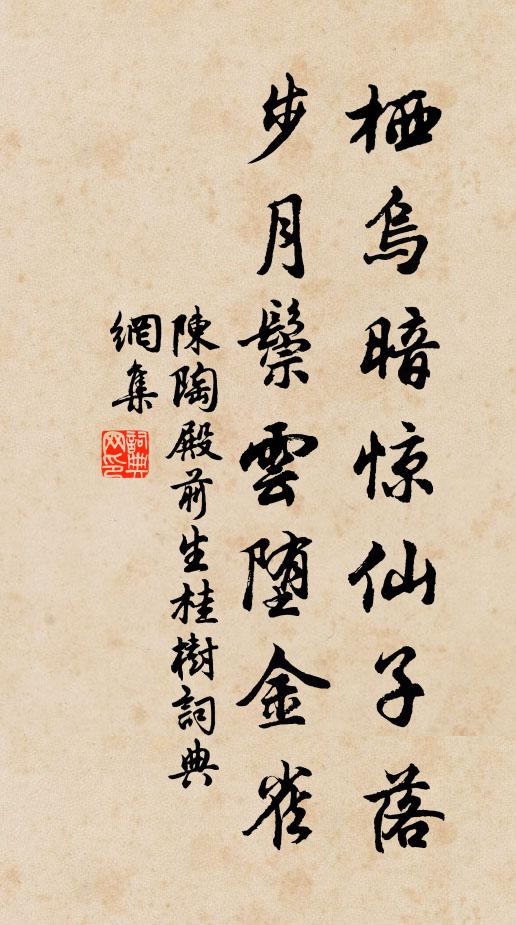 栖乌暗惊仙子落
步月鬓雲堕金雀
陳陶殿前生桂樹詞典
網集
詞典
网印